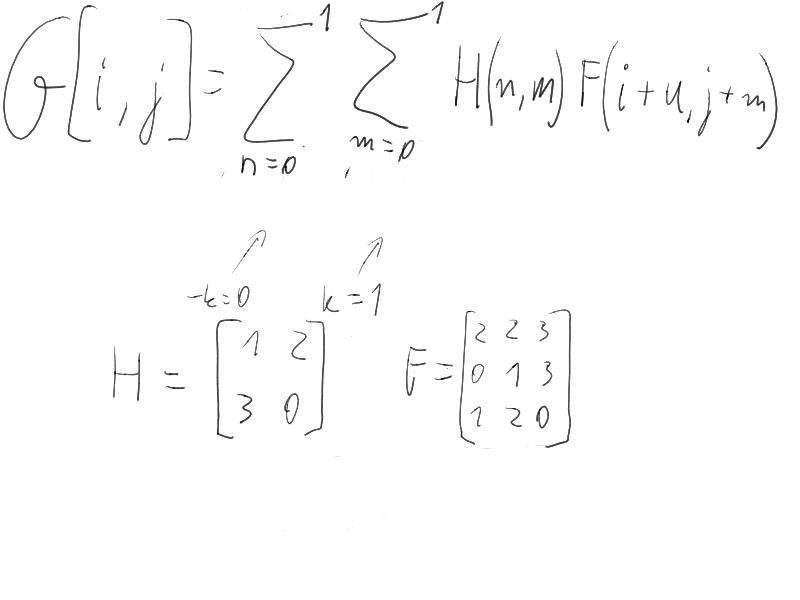 G[i,j] = ∑_{n=0}^{1} ∑_{m=0}^{1} H(n,m) F(i+u,j+m)
-k=0 k=1
H = [1 2; 3 0] F = [2 2 3; 0 1 3; 1 2 0]